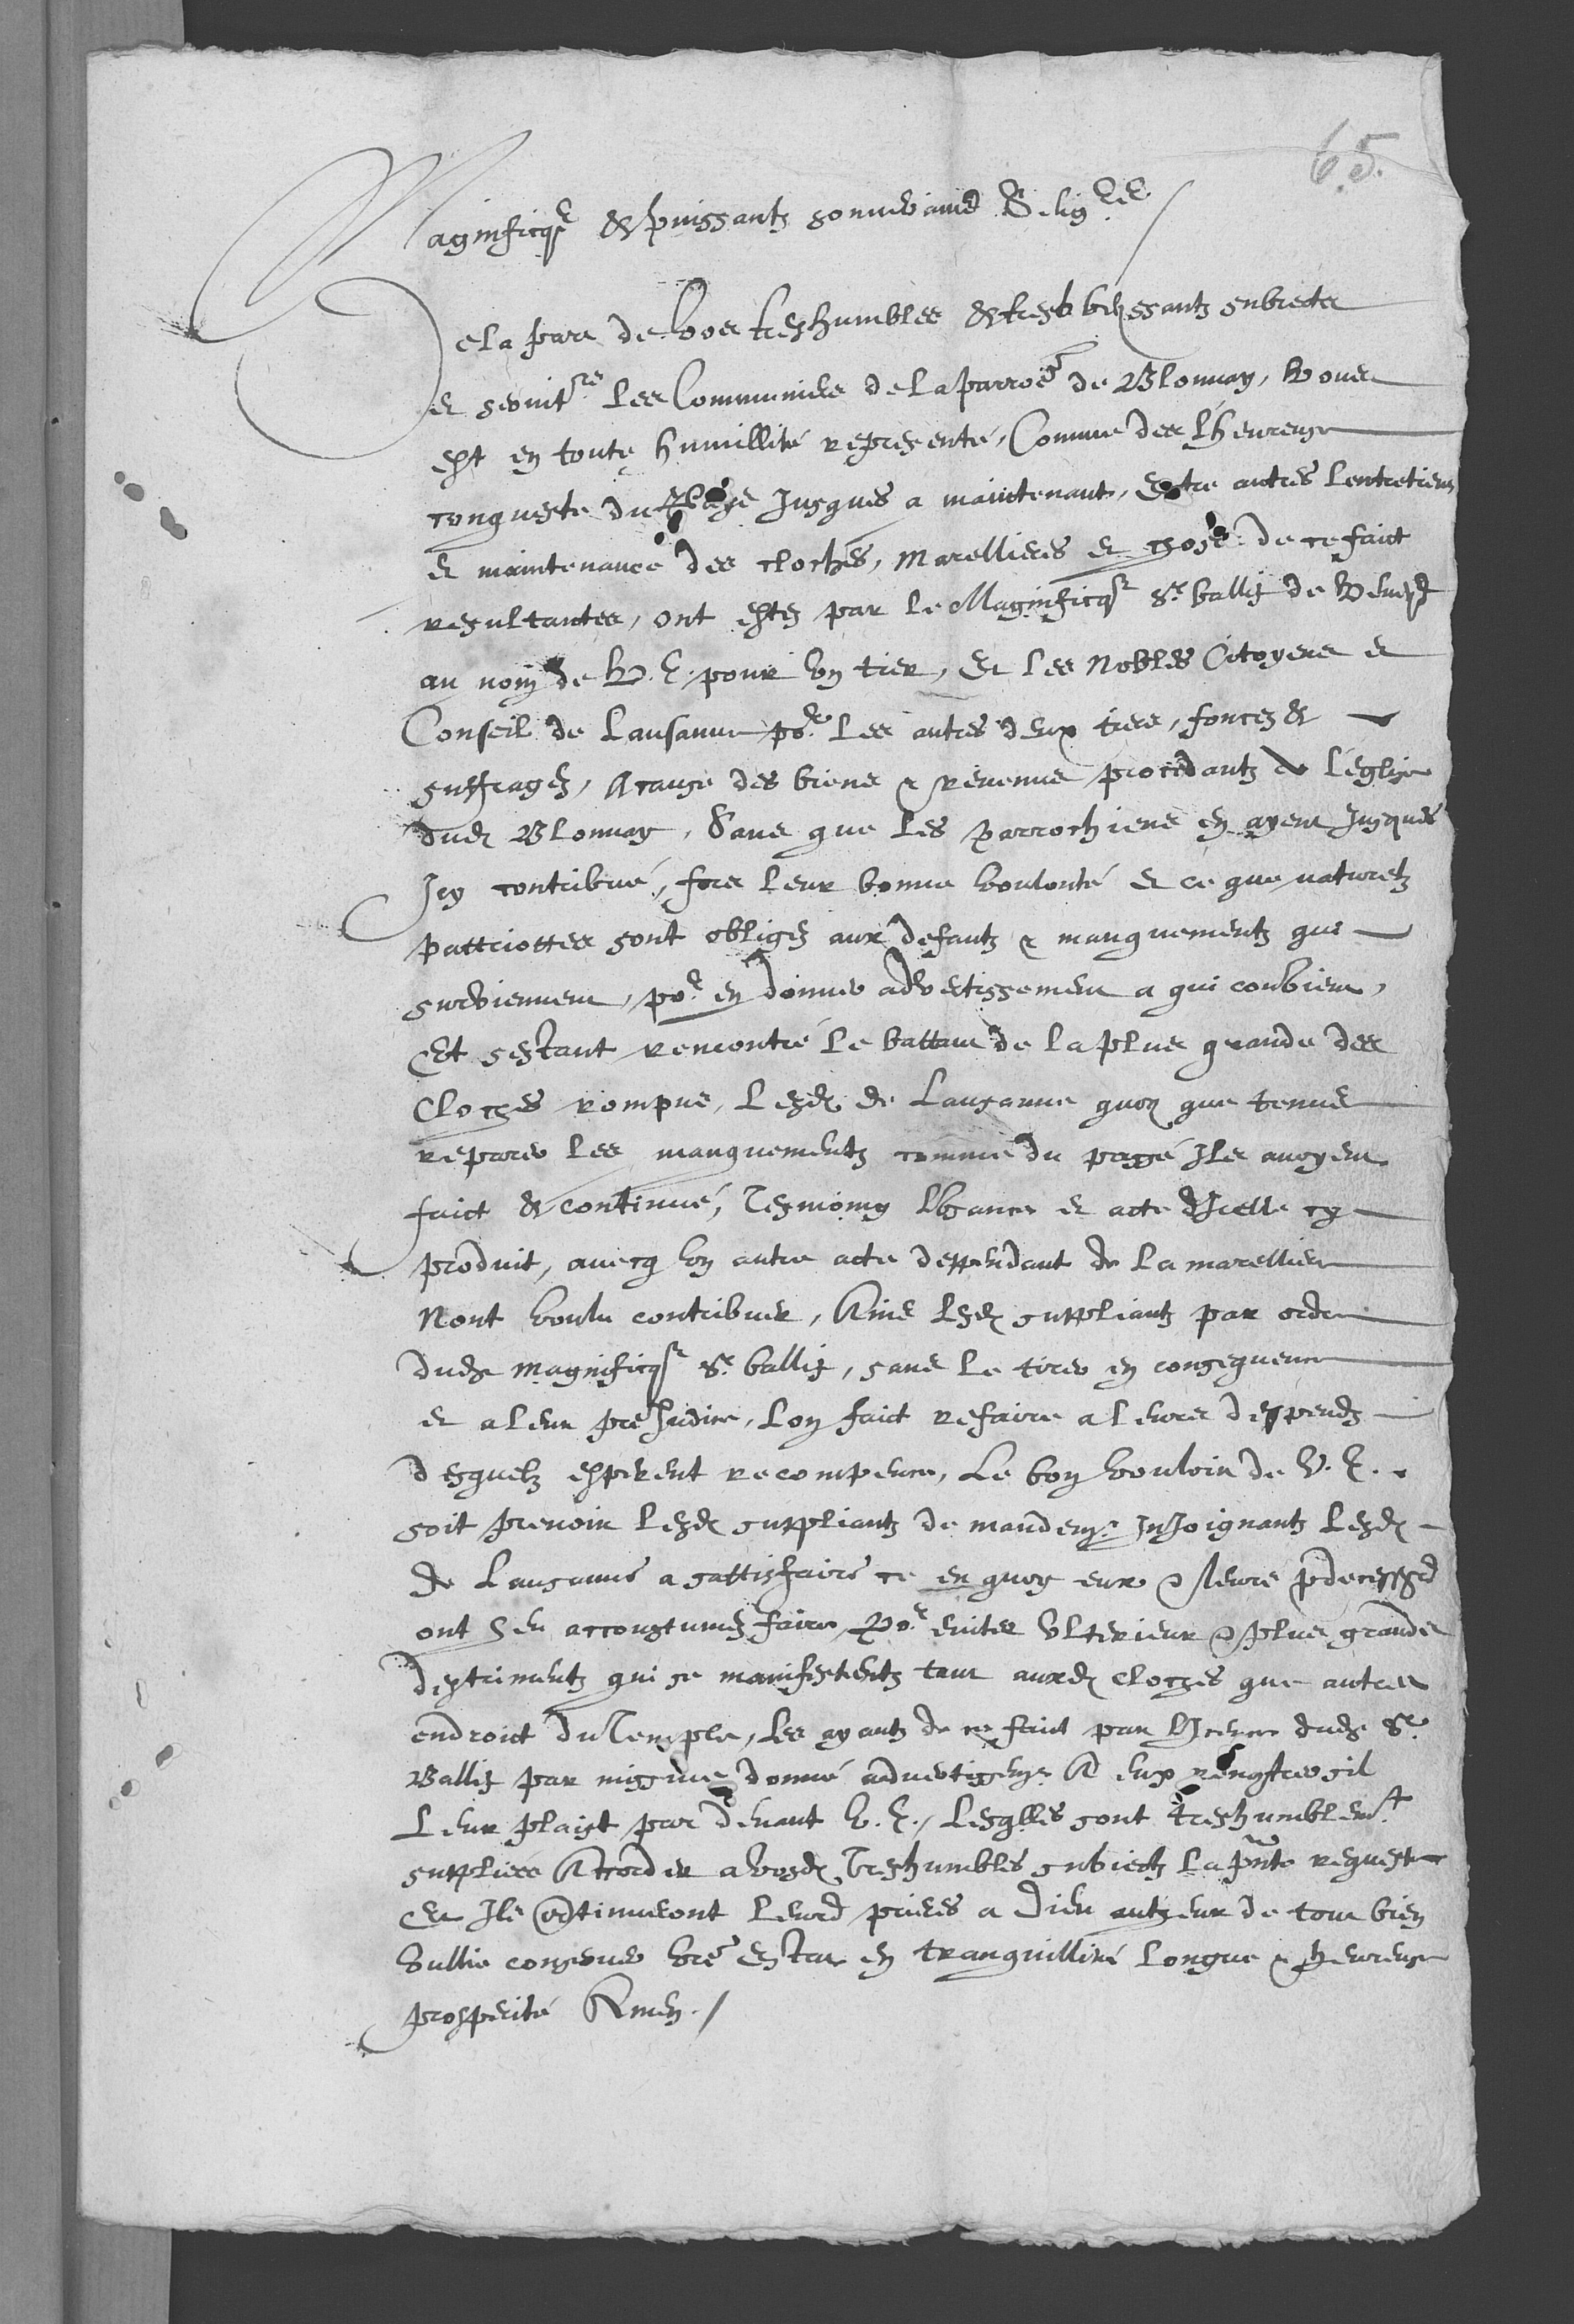 65.
Magnificqs & puissantz souverains Seigrs /
De la part de voz treshumbles & tresobeissantz subiects
et servitrs les Communiers de la parroes de Blonnay, vous
est en toute humillité represente, Comme des lheureuse
conqueste du Pays Jusques a maintenant, Entre autres lentretiens
et maintenance des cloches, marellieres et chose de ce faict
resultantes, ont estez par le Magnificqe Sr ballif de Vevey
au nom de V. E. pour un tier, Et les Nobles Citoyens et
Conseil de Lausanne por les autres deux tiers, foncez &
suffragez, A cause des biens & revenus procedantz de leglise
dud Blonnay, Sans que les parrochiens en ayent Jusques
Icy contribué, fors leur bonne voulonté et ce que naturelz
pattriottes sont obligez aux defautz & manquementz qui
surviennent, por en donner advertissement a qui convient,
Et sestant remontré le battant de la plus grande des
Cloches rompus, lesd de Lausanne quoy que tenus
reparer les manquementz comme du passé Ils avoyent
faict & continué, Tesmoing usance et acte dicelle cy
produit, avecq un autre acte deppendant de la marellier
Nont voulu contribuer, Ains lesd suppliantz par ordre
dudt magnificqe Sr ballif, sans le tirer en consequence
et a leur preJudice, lon faict refaire a leurs despendz
desquelz esperent recompence, Le bon vouloir de V. E.
soit prevoir lesd suppliantz de mandemt InJoignantz lesd
de Lausanne a sattisfaire ce en quoy eux & leurs predecessrs
ont heu accoustumez faire, Por eviter ulterieur & plus grands
destrimentz qui se manifestentz tant auxd Cloches que autres
endroict du Temple, les ayantz de ce faict par licence dudt Sr
Ballif par missive donné advertissemt A eux sil
Leur plaist par devant V. E., lesqlles sont treshumblemt
suppliées Accorder a vosd Treshumbles subiectz la pnte requeste
Et Ils continueront leurs prieres a Dieu autheur de tout bien
vullie conserver vre Estat en tranquillité longue & heureuse
prosperité Amen. /